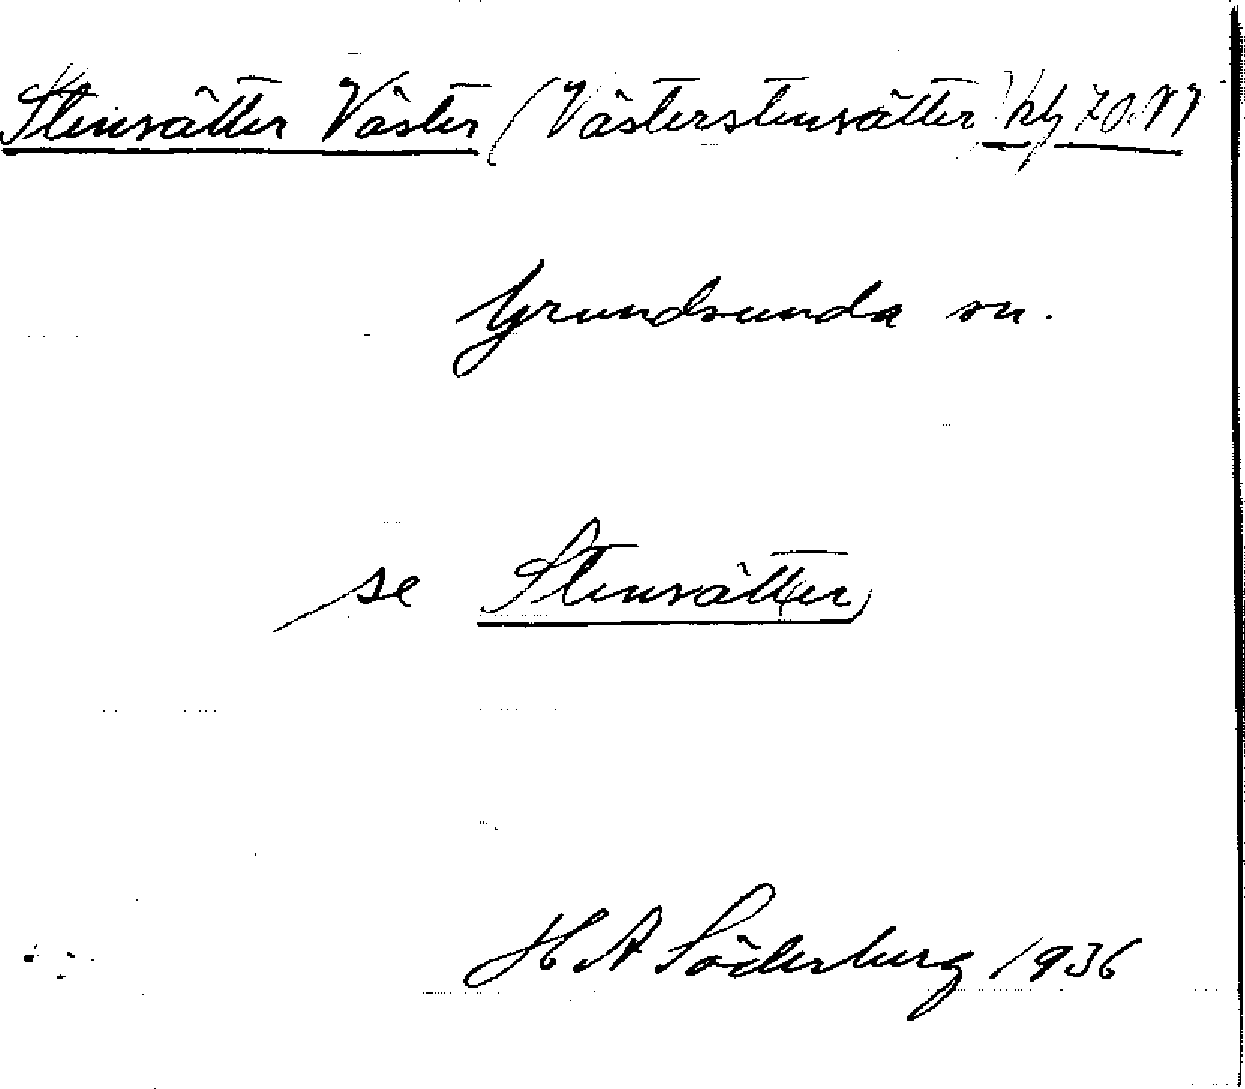 Stensätter Väster (Västerstensätter)
Grundsunda sn.
se Stensätter
H A Söderberg 1936